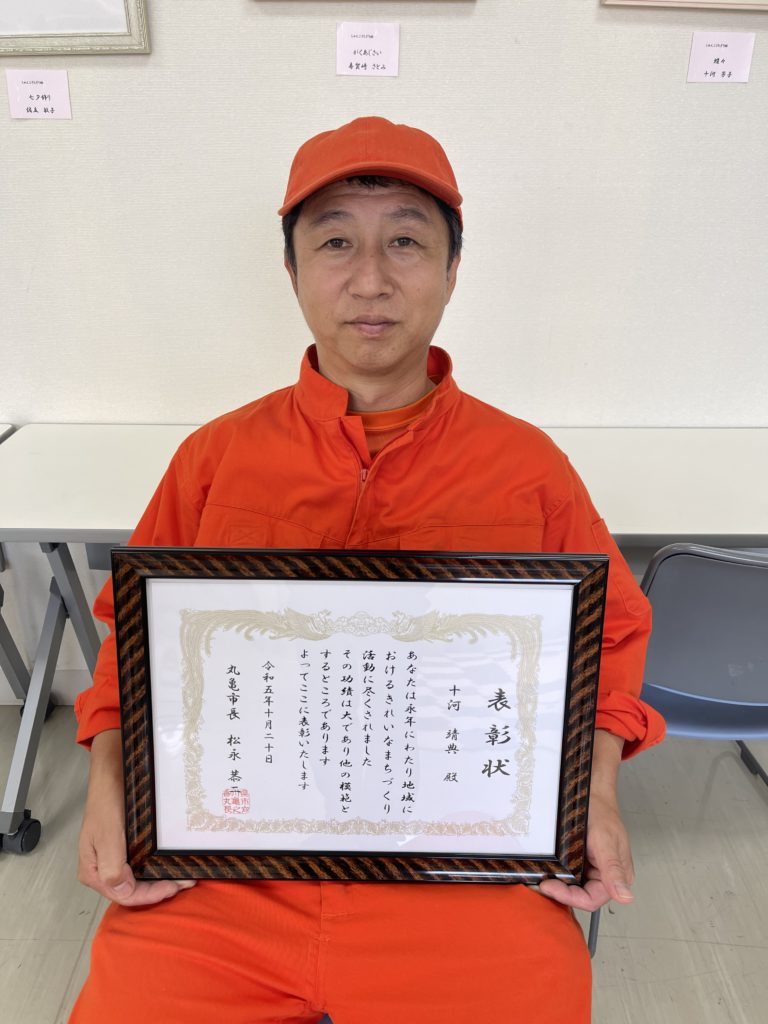 七夕飾り
がくあじさい
蝶々
十河 芳子
表彰状
十河 靖典 殿
あなたは永年にわたり地域に
おけるきれいなまちづくり
活動に尽くされました
その功績は大であり他の模範と
するところであります
よってここに表彰いたします
令和五年十月二十日
丸亀市長 松永 恭二